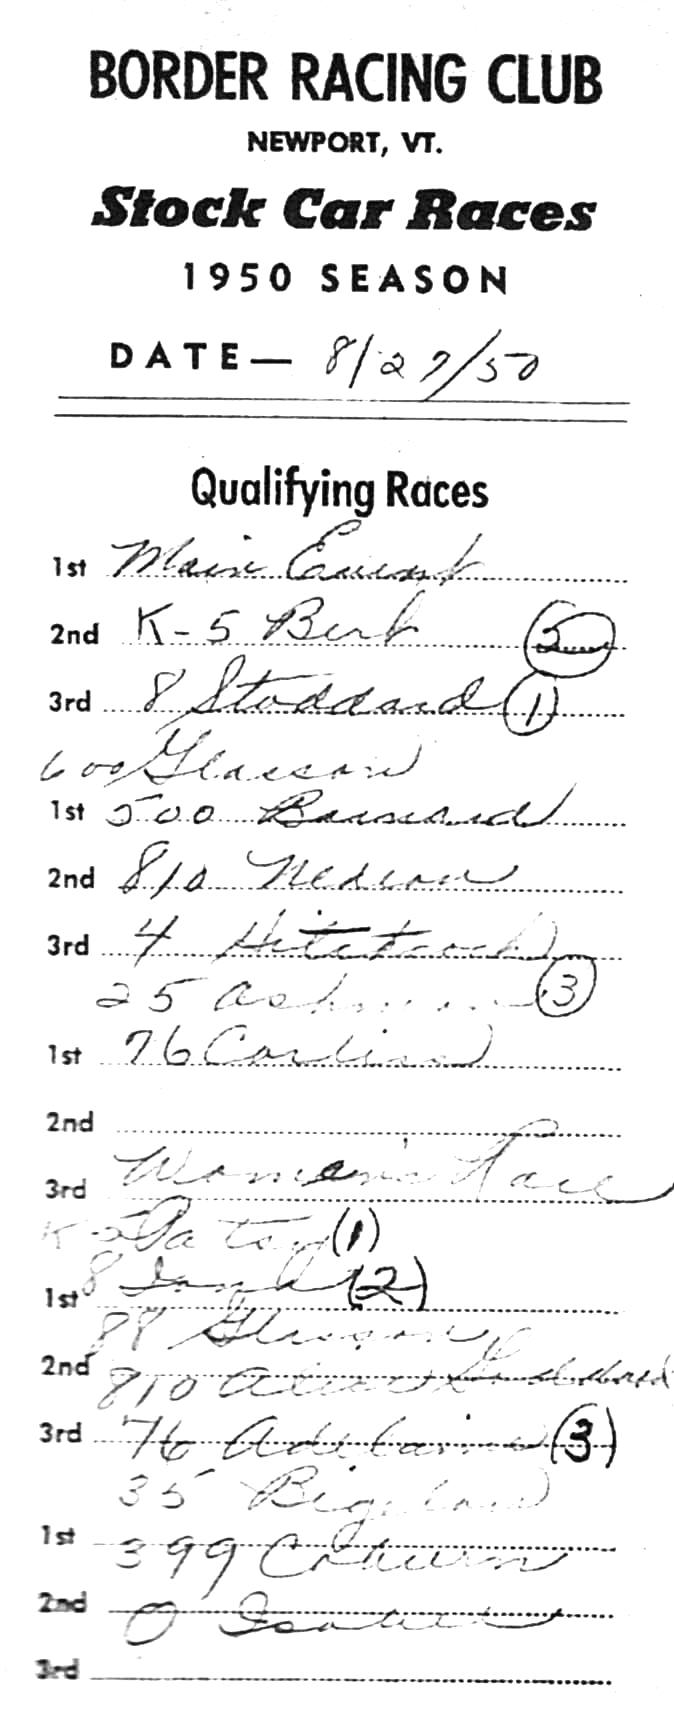 BORDER RACING CLUB
NEWPORT, VT.
Stock Car Races
1950 SEASON
DATE— 8/27/50
Qualifying Races
1st Main Event
2nd K-5 Bert 5
3rd 8 Stoddard 1
600 Glasson
1st 500 Barnard
2nd 810
3rd 4 Hitchcock
25 Ashman 3
1st 76
2nd
3rd Women's Race
K-5 Patsy (1)
1st 8 (2)
88 Glasson
2nd
810 Goddard
3rd 76 (3)
35 Bigelow
1st
399 Coburn
2nd
0
3rd